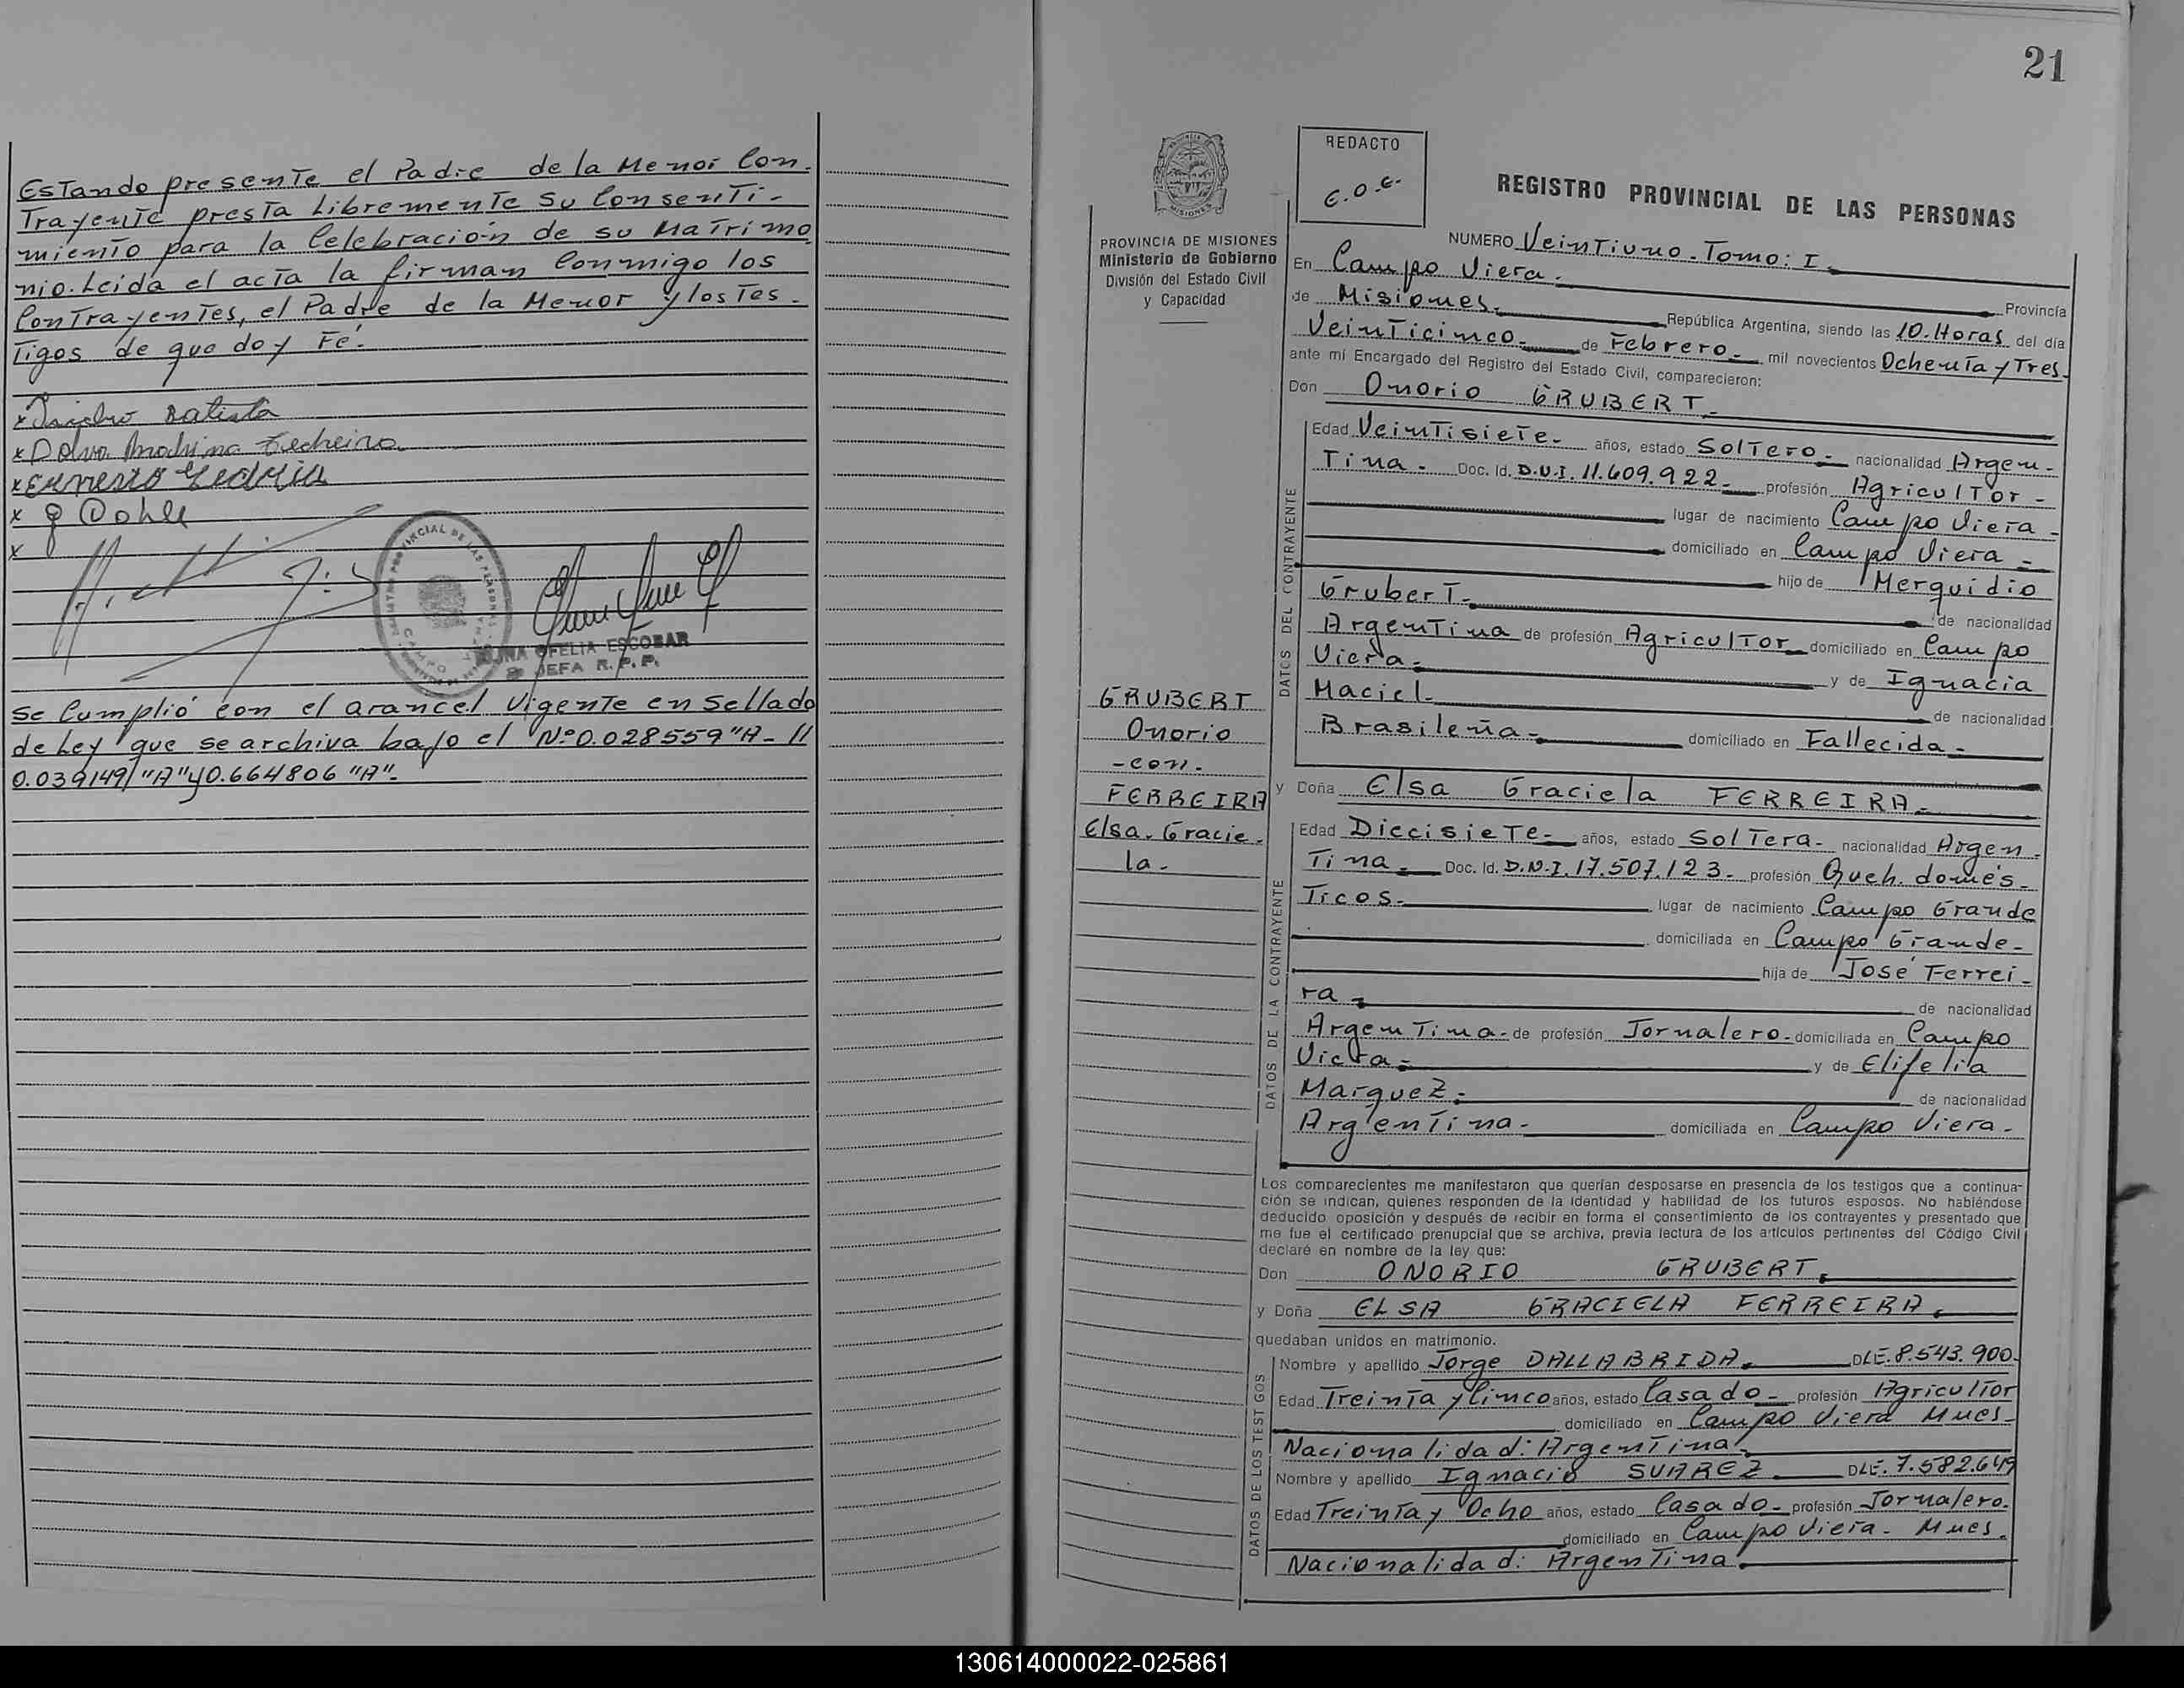 Estando presente el Padre de la Menor Con-
trayente presta Libremente Su Consenti-
miento para la Celebración de su Matrimo
nio. Leida el acta la firman Conmigo los
Contrayentes, el Padre de la Menor y los Tes-
tigos de que doy Fé.
x Batista
x
x Ernesto
x
x
OFELIA ESCOBAR
JEFA R. P. P.
Se Cumplió con el arancel Vigente en Sellado
de Ley que se archiva bajo el Nº0.028559 "A- //
0.039149/"A" y 0.664806 "A"-
21
PROVINCIA DE MISIONES
Ministerio de Gobierno
División del Estado Civil
y Capacidad
REDACTO
E.O.E.
REGISTRO PROVINCIAL DE LAS PERSONAS
NUMERO Veintiuno - Tomo: I
En Campo Viera. Provincia
de Misiones. República Argentina, siendo las 10. Horas del día
Veinticinco- de Febrero- mil novecientos Ochenta y Tres-
ante mi Encargado del Registro del Estado Civil, comparecieron:
Don Onorio GRUBERT-
DATOS DEL CONTRAYENTE
Edad Veintisiete- años, estado Soltero- nacionalidad Argen-
Tina- Doc. Id. D.N.I. 11.609.922- profesión Agricultor-
lugar de nacimiento Campo Viera-
domiciliado en Campo Viera-
hijo de Merquidio
Grubert- de nacionalidad
Argentina de profesión Agricultor domiciliado en Campo
Viera- y de Ignacia
Maciel- de nacionalidad
Brasileña- domiciliado en Fallecida-
GRUBERT
Onorio
-con-
FERREIRA
Elsa. Gracie-
la-
y Doña Elsa Graciela FERREIRA-
DATOS DE LA CONTRAYENTE
Edad Diecisiete- años, estado Soltera- nacionalidad Argen-
Tina- Doc. Id. D.N.I. 17.507.123- profesión Queh. domés-
Ticos- lugar de nacimiento Campo Grande
domiciliada en Campo Grande-
hija de José Ferrei-
ra- de nacionalidad
Argentina- de profesión Jornalero- domiciliada en Campo
Viera- y de Elifelia
Marquez- de nacionalidad
Argentina- domiciliada en Campo Viera-
Los comparecientes me manifestaron que querían desposarse en presencia de los testigos que a continua-
ción se indican, quienes responden de la identidad y habilidad de los futuros esposos. No habiéndose
deducido oposición y después de recibir en forma el consentimiento de los contrayentes y presentado que
me fue el certificado prenupcial que se archiva, previa lectura de los artículos pertinentes del Código Civil
declaré en nombre de la ley que:
Don ONORIO GRUBERT-
y Doña ELSA GRACIELA FERREIRA-
quedaban unidos en matrimonio.
DATOS DE LOS TESTIGOS
Nombre y apellido Jorge DALLABRIDA. DLE. 8.543.900-
Edad Treinta y Cinco años, estado Casado- profesión Agricultor
domiciliado en Campo Viera Mnes-
Nacionalidad: Argentina-
Nombre y apellido Ignacio SUAREZ DLE. 7.582.649
Edad Treinta y Ocho años, estado Casado- profesión Jornalero-
domiciliado en Campo Viera- Mnes.
Nacionalidad: Argentina.
130614000022-025861